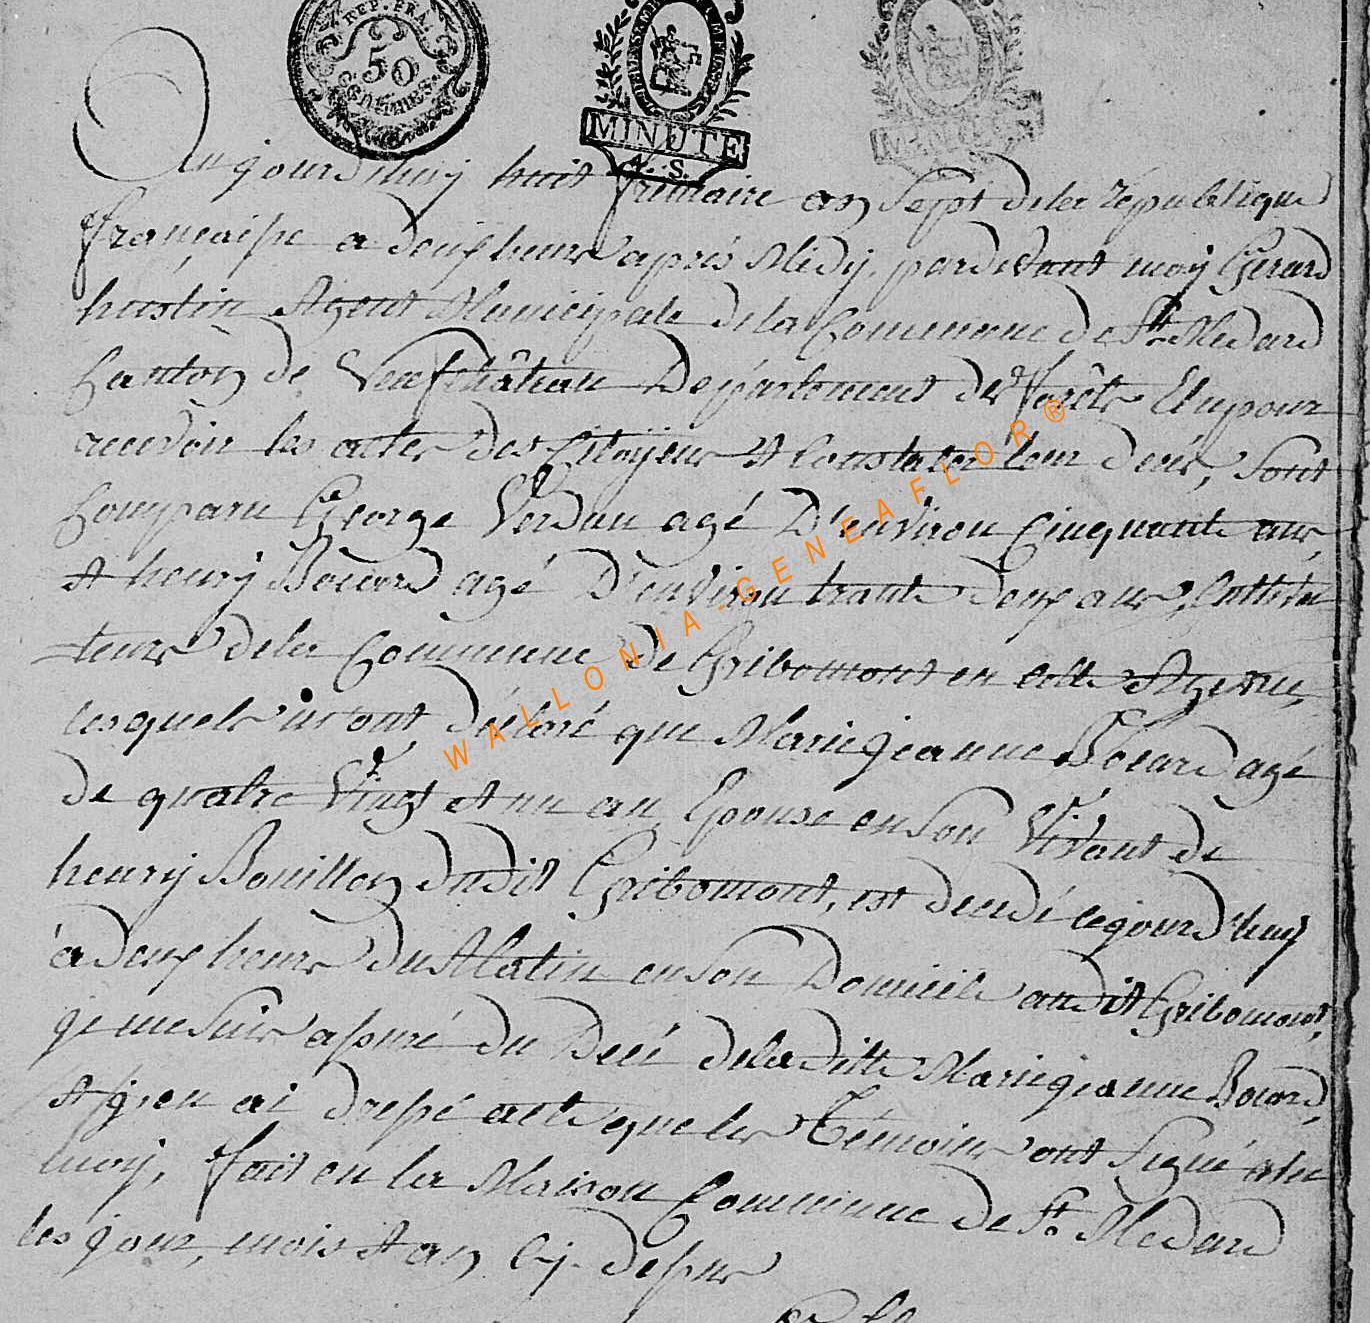 REP. FRA.
50
CENTIMES.
MINUTE
A. S.
Aujourdhuy huit frimaire an Sept dela république
françaisse a deux heures après Midÿ, pardevant moÿ Gérard
hustin Agent Municipale dela Commune de St. Medard
Canton de Neufchâteau Département des forêts Elu pour
recevoir les actes des Citoÿens et Constater leur décès, Sont
Comparu George Verdun agé D'environ Cinquante ans,
et henrÿ Bouard agé D'environ trante deux ans, Cultiva
teurs dela Commune de Gribomont en cette Agence,
lesquels m'ont déclaré que Marie jeanne Bouard agé
de quatre Vingt et un an Epouse en Son Vivant de
henrÿ Bouillon dudit Gribomont, est decedé cejourd'huÿ
à deux heures du Matin en son Domicile audit Gribomont,
je me suis assuré du Décé deladitte Marie jeanne Bouard,
et j'en ai dressé acte que les Témoins ont Signé avec
moÿ, fait en la Maison Commune de St. Medard
les jour, mois et an Cÿ-dessus
WALLONIA-GENEAFLOR®